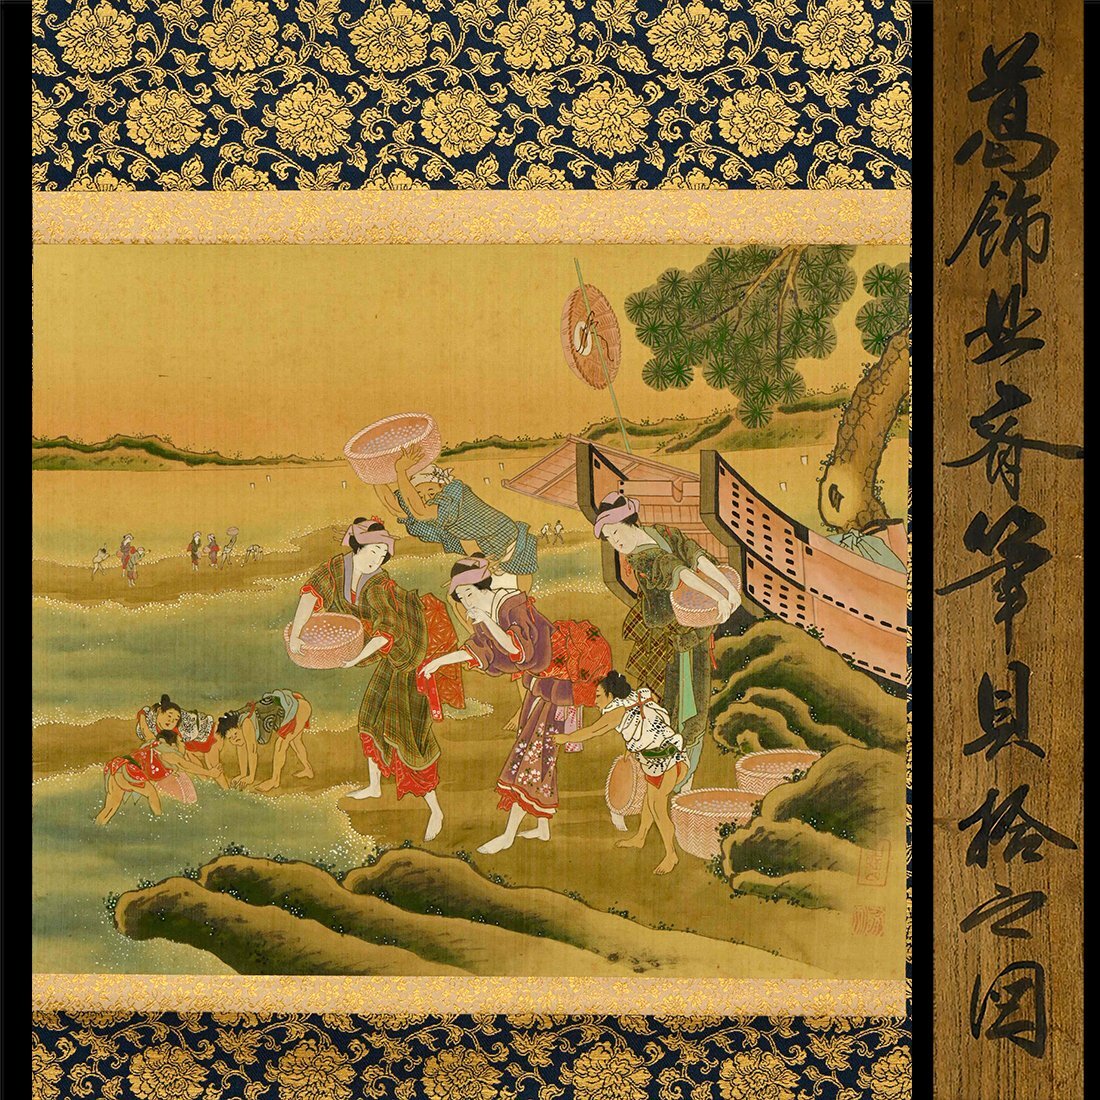 葛飾北斎筆貝拾之図